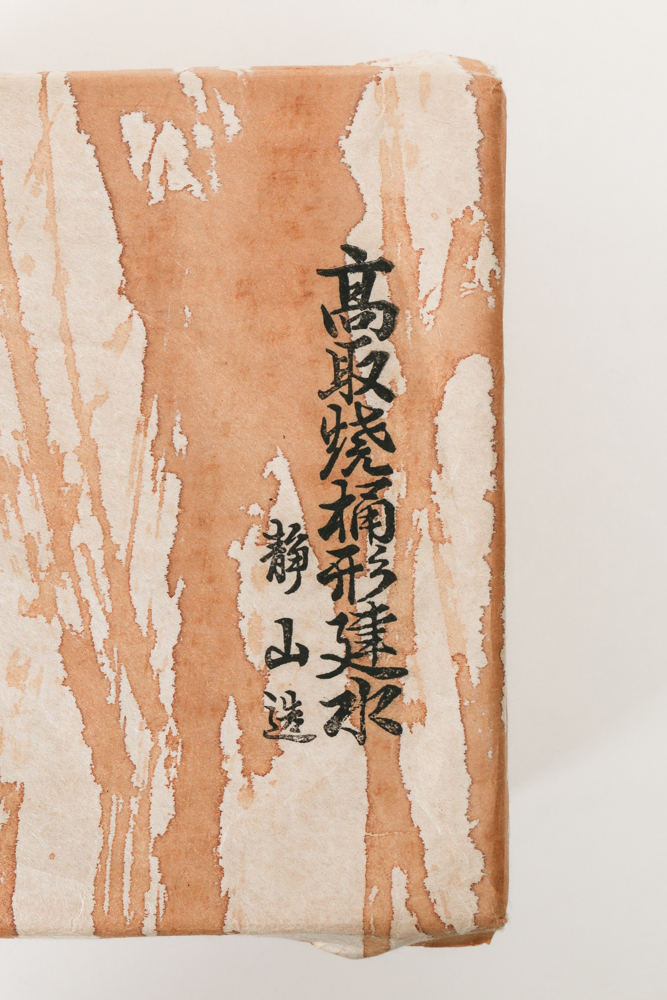 髙取焼桶形建水
静山造